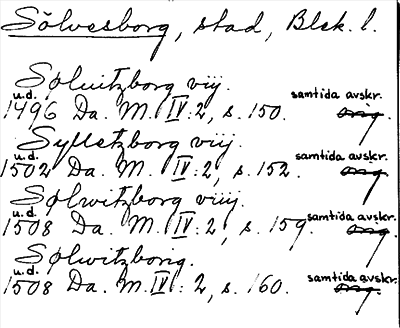 Sölvesborg, stad, Blek. l.
Søluitzborg viij.
u.d. samtida avskr.
1496 Da. M. IV:2, s. 150. orig.
Sylletzborg viij.
u.d. samtida avskr.
1502 Da. M. IV:2, s. 152. orig.
Sølwitzborg viij.
u.d. samtida avskr.
1508 Da. M. IV:2, s. 159. orig.
Sølwitzborig.
u.d. samtida avskr.
1508 Da. M. IV:2, s. 160. orig.